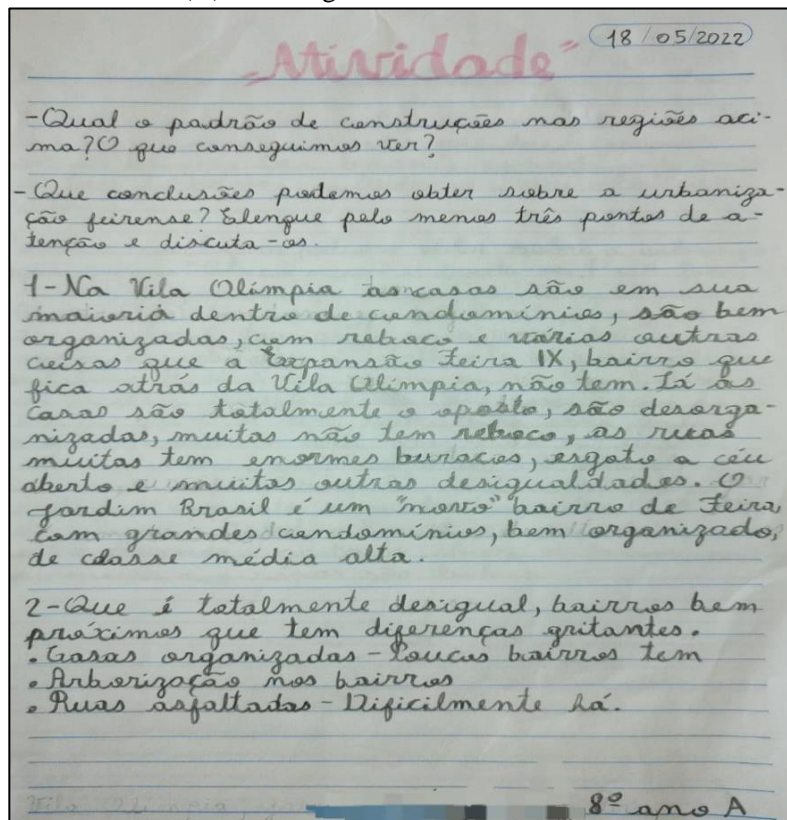 18/05/2022
"Atividade"
-Qual o padrão de construções nas regiões aci-
ma? O que conseguimos ver?
-Que conclusões podemos obter sobre a urbaniza-
ção feirense? Elenque pelo menos três pontos de a-
tenção e discuta-os.
1-Na Vila Olímpia as casas são em sua
maioria dentro de condomínios, são bem
organizadas, com reboco e várias outras
coisas que a Expansão Feira IX, bairro que
fica atrás da Vila Olímpia, não tem. Lá as
casas são totalmente o oposto, são desorga-
nizadas, muitas não tem reboco, as ruas
muitas tem enormes buracos, esgoto a céu
aberto e muitas outras desigualdades. O
Jardim Brasil é um "novo" bairro de Feira,
com grandes condomínios, bem organizado,
de classe média alta.
2-Que é totalmente desigual, bairros bem
próximos que tem diferenças gritantes.
• Casas organizadas - Poucos bairros tem
• Arborização nos bairros
• Ruas asfaltadas - Dificilmente há.
8º ano A